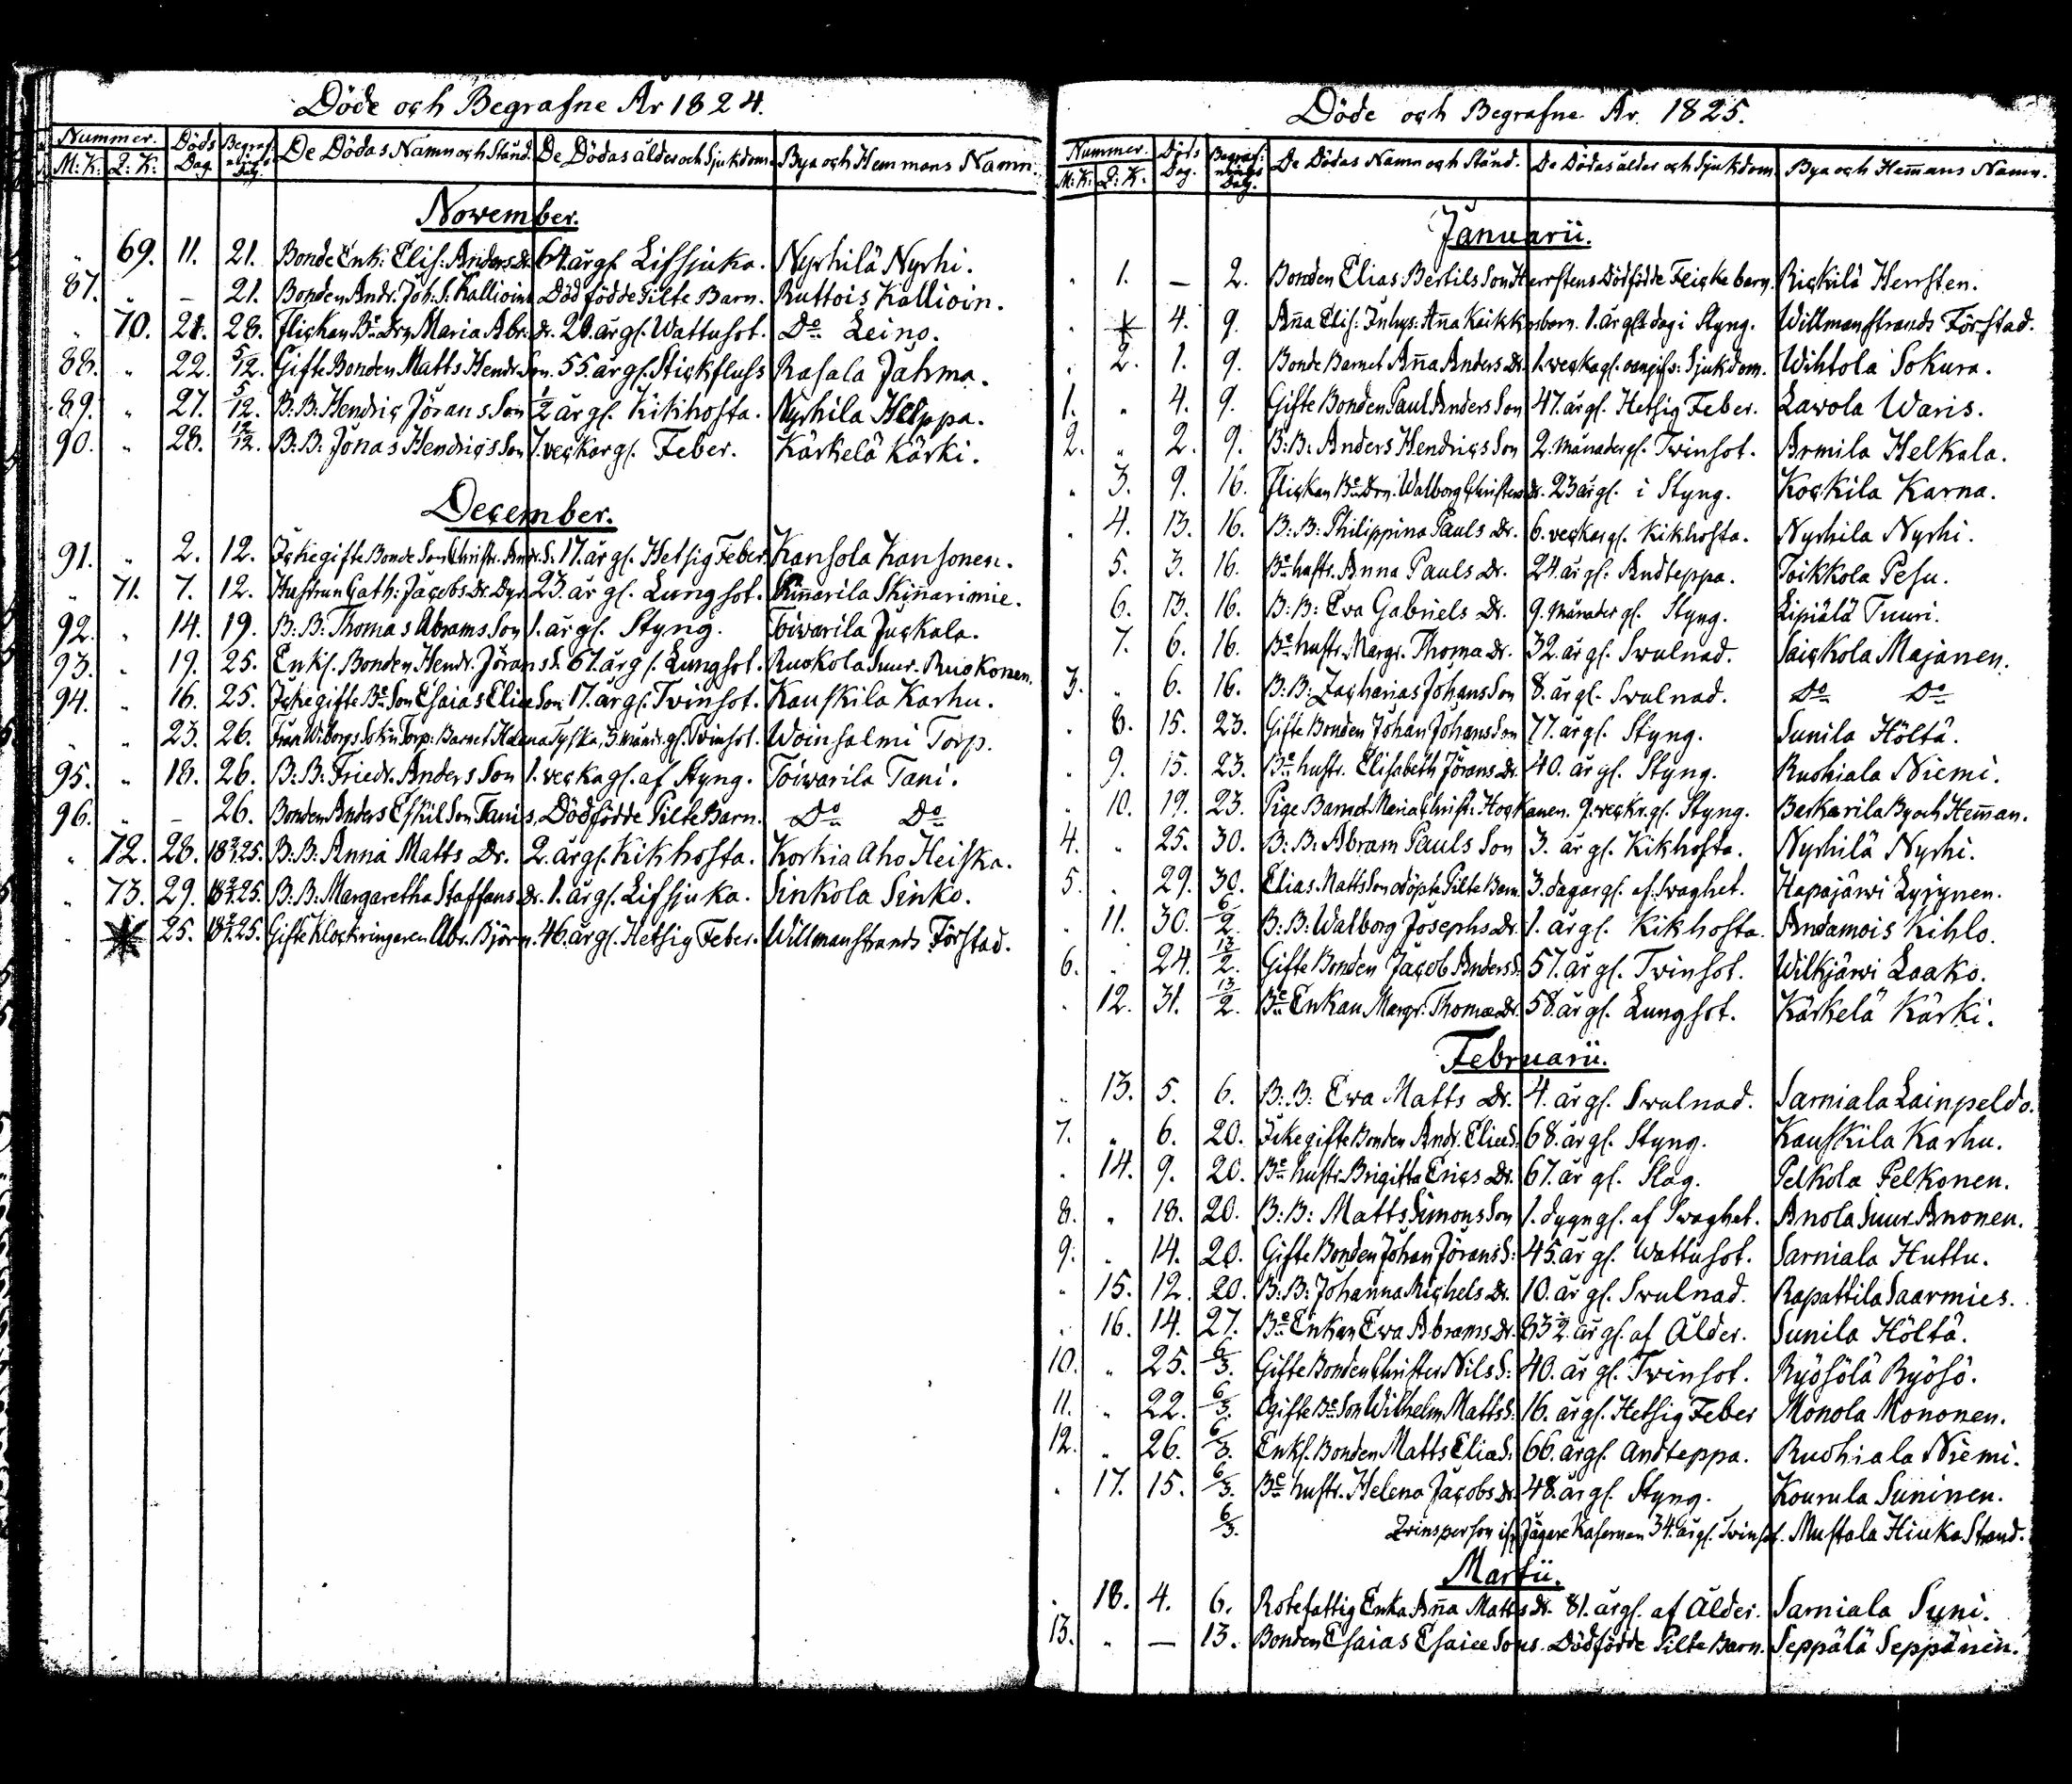 Döde och Begrafne År 1824.
Nummer. Döds Dag. Begrafnings Dag. De Dödas Namn och Stånd. De Dödas ålder och Sjukdom. Bya och Hemmans Namn.
M: K: Q: K:
November.
„ 69. 11. 21. Bonde Enk: Elis: Anders Dr. 64. år gl. Lifsjuka. Nyrhilä Nyrhi.
87. „ — 21. Bonden Andr. Joh. S. Kallioin Dödfödde Pilte Barn. Ruttois Kallioin.
„ 70. 21. 28. Flickan Be Drn Maria Abr. Dr. 20. år gl. Wattusot. Do Leino.
88. „ 22. 5/12. Gifte Bonden Matts Hendr. Son. 55. år gl. Stickfluss Rasala Jahma.
89. „ 27. 5/12. B: B: Hendric Jörans Son 1/2 år gl. Kikhosta. Nyrhila Helppa.
90. „ 28. 12/12. B: B: Jonas Hendrics Son 7. veckor gl. Feber. Kärkelä Kärki.
December.
91. „ 2. 12. Ickegifte Bonde Son Christr. Andr. S. 17. år gl. Hetsig Feber. Kansola Kansonen.
„ 71. 7. 12. Hustrun Cath: Jacobs Dr. 23. år gl. Lungsot. Kinnarila Skinarimie.
92. „ 14. 19. B: B: Thomas Abrams Son 1. år gl. Styng. Toiwarila Juckala.
93. „ 19. 25. Enkl. Bonden Hendr. Jörans S. 67. år gl. Lungsot. Ruokola Suur-Ruokonen.
94. „ 16. 25. Ickegifte Be Son Esaias Eliæ Son 17. år gl. Twinsot. Kauskila Karhu.
„ „ 23. 26. Från Wiborgs Sokn Torp: Barnet Helena Tyska, 3. månr. gl. Twinsot. Woinsalmi Torp.
95. „ 18. 26. B: B: Friedr. Anders Son 1. vecka gl. af Styng. Toiwarila Tani.
96. „ — 26. Bonden Anders Eskil Son Tanis. Dödfödde Pilte Barn. Do Do
„ 72. 28. 18 2/1 25. B: B: Anna Matts Dr. 2. år gl. Kikhosta. Korkia Aho Heiska.
„ 73. 29. 18 2/1 25. B: B: Margaretha Staffans Dr. 1. år gl. Lifsjuka. Sinkola Sinko.
„ 25. 18 2/1 25. Gifte Klockringaren Abr. Björn. 46. år gl. Hetsig Feber. Willmanstrands Förstad.
Döde och Begrafne År 1825.
Nummer. Döds Dag. Begrafnings Dag. De Dödas Namn och Stånd. De Dödas ålder och Sjukdom. Bya och Hem̄ans Namn.
M: K: Q: K.
Januarii.
„ 1. — 2. Bonden Elias Bertils Son Herrstens Dödfödde Flicke barn. Rickilä Herrsten.
„ 4. 9. An̄a Elis: Inhys: An̄a Kaikkosbarn. 1. år gl. dog i Styng. Willmanstrands Förstad.
„ 2. 1. 9. Bonde Barnet An̄a Anders Dr. 1. vecka gl. oangifv: Sjukdom. Wihtola Sokura.
1. „ 4. 9. Gifte Bonden Paul Anders Son 47. år gl. Hetsig Feber. Lavola Waris.
2. „ 2. 9. B: B: Anders Hendrics Son 2. månader gl. Twinsot. Armila Helkala.
„ 3. 9. 16. Flickan Be Drn. Walborg Christers Dr. 23 år gl. i Styng. Kockila Karna.
„ 4. 13. 16. B: B: Philippina Pauls Dr. 6. veckor gl. Kikhosta. Nyrhila Nyrhi.
5. 3. 16. Be hustr. Anna Pauls Dr. 24. år gl. Andteppa. Toikkola Pesu.
6. 13. 16. B: B: Eva Gabriels Dr. 9. månader gl. Styng. Lipiälä Tuuri.
7. 6. 16. Be hustr. Margr. Thomæ Dr. 32. år gl. Swulnad. Saickola Majanen.
3. „ 6. 16. B: B: Zacharias Johans Son 8. år gl. Swulnad. Do Do
„ 8. 15. 23. Gifte Bonden Johan Johans Son 77. år gl. Styng. Sunila Höltä.
„ 9. 15. 23. Be hustr. Elisabeth Jörans Dr. 40. år gl. Styng. Ruohiala Niemi.
„ 10. 19. 23. Pige Barnet Maria Christ. Hockanen. 9. veckr. gl. Styng. Backarila By och Hem̄an.
4. „ 25. 30. B: B: Abram Pauls Son 3. år gl. Kikhosta. Nyrhilä Nyrhi.
5. „ 29. 30. Elias Matts Son döpte Pilte Barn. 3. dagar gl. af Swaghet. Hapajärwi Lyjynen.
„ 11. 30. 6/2. B: B: Walborg Josephs Dr. 1. år gl. Kikhosta. Andamois Kihlo.
6. „ 24. 13/2. Gifte Bonden Jacob Anders S. 57. år gl. Twinsot. Wilkjärwi Laako.
„ 12. 31. 13/2. Be Enkan Margr: Thomæ Dr. 58. år gl. Lungsot. Kärkelä Kärki.
Februarii.
„ 13. 5. 6. B: B: Ewa Matts Dr. 4. år gl. Swulnad. Sarniala Lainpeldo.
7. „ 6. 20. Icke gifte Bonden Andr. Eliæ S. 68. år gl. Styng. Kauskila Karhu.
„ 14. 9. 20. Be hustr. Brigitta Erics Dr. 67. år gl. Slag. Pelkola Pelkonen.
8. „ 18. 20. B: B: Matts Simons Son 1. dygn gl. af Swaghet. Anola Suur Anonen.
9. „ 14. 20. Gifte Bonden Johan Jörans S: 45. år gl. Wattusot. Sarniala Huttu.
„ 15. 12. 20. B: B: Johanna Michels Dr. 10. år gl. Swulnad. Rapattila Saarmies.
„ 16. 14. 27. Be Enkan Ewa Abrams Dr. 83 1/2 år gl. af Ålder. Sunila Höltä.
10. „ 25. 6/3. Gifte Bonden Christer Nils S: 40. år gl. Twinsot. Ryösölä Ryösö.
11. „ 22. 6/3. Ogifte Be Son Wilhelm Matts S: 16. år gl. Hetsig Feber Monola Mononen.
12. „ 26. 6/3. Enkl. Bonden Matts Elia S: 66. år gl. Andteppa. Ruohiala Niemi.
„ 17. 15. 6/3. Be hustr. Helena Jacobs Dr. 48. år gl. Styng. Kourula Suninen.
6/3. Jägare Kasernen 34. år gl. Twinsot. Mustola Hiuka Strand.
Martii.
„ 18. 4. 6. Rotefattig Enka An̄a Matts Dr. 81. år gl. af Ålder. Sarniala Suni.
13. „ — 13. Bonden Esaias Esaiæ Sons. Dödfödde Pilte Barn. Seppälä Seppänen.